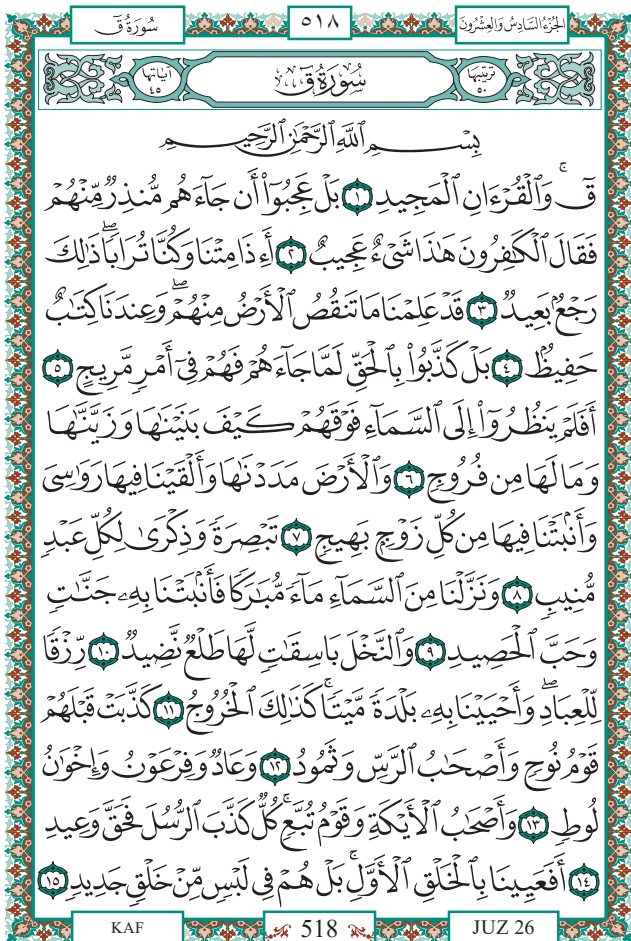 سُورَةُ قٓ
٥١٨
الجُزْءُ السَّادِسُ وَالعِشْرُونَ
تَرْتِيبُهَا ٥٠
سُورَةُ قٓ
آيَاتُهَا ٤٥
بِسْمِ ٱللَّهِ ٱلرَّحْمَٰنِ ٱلرَّحِيمِ
قٓۚ وَٱلْقُرْءَانِ ٱلْمَجِيدِ ١ بَلْ عَجِبُوٓا۟ أَن جَآءَهُم مُّنذِرٌ مِّنْهُمْ
فَقَالَ ٱلْكَٰفِرُونَ هَٰذَا شَىْءٌ عَجِيبٌ ٢ أَءِذَا مِتْنَا وَكُنَّا تُرَابًاۖ ذَٰلِكَ
رَجْعٌۢ بَعِيدٌ ٣ قَدْ عَلِمْنَا مَا تَنقُصُ ٱلْأَرْضُ مِنْهُمْۖ وَعِندَنَا كِتَٰبٌ
حَفِيظٌۢ ٤ بَلْ كَذَّبُوا۟ بِٱلْحَقِّ لَمَّا جَآءَهُمْ فَهُمْ فِىٓ أَمْرٍ مَّرِيجٍ ٥
أَفَلَمْ يَنظُرُوٓا۟ إِلَى ٱلسَّمَآءِ فَوْقَهُمْ كَيْفَ بَنَيْنَٰهَا وَزَيَّنَّٰهَا
وَمَا لَهَا مِن فُرُوجٍ ٦ وَٱلْأَرْضَ مَدَدْنَٰهَا وَأَلْقَيْنَا فِيهَا رَوَٰسِىَ
وَأَنۢبَتْنَا فِيهَا مِن كُلِّ زَوْجٍۭ بَهِيجٍ ٧ تَبْصِرَةً وَذِكْرَىٰ لِكُلِّ عَبْدٍ
مُّنِيبٍ ٨ وَنَزَّلْنَا مِنَ ٱلسَّمَآءِ مَآءً مُّبَٰرَكًا فَأَنۢبَتْنَا بِهِۦ جَنَّٰتٍ
وَحَبَّ ٱلْحَصِيدِ ٩ وَٱلنَّخْلَ بَاسِقَٰتٍ لَّهَا طَلْعٌ نَّضِيدٌ ١٠ رِّزْقًا
لِّلْعِبَادِۖ وَأَحْيَيْنَا بِهِۦ بَلْدَةً مَّيْتًاۚ كَذَٰلِكَ ٱلْخُرُوجُ ١١ كَذَّبَتْ قَبْلَهُمْ
قَوْمُ نُوحٍ وَأَصْحَٰبُ ٱلرَّسِّ وَثَمُودُ ١٢ وَعَادٌ وَفِرْعَوْنُ وَإِخْوَٰنُ
لُوطٍ ١٣ وَأَصْحَٰبُ ٱلْأَيْكَةِ وَقَوْمُ تُبَّعٍۚ كُلٌّ كَذَّبَ ٱلرُّسُلَ فَحَقَّ وَعِيدِ
١٤ أَفَعَيِينَا بِٱلْخَلْقِ ٱلْأَوَّلِۚ بَلْ هُمْ فِى لَبْسٍ مِّنْ خَلْقٍ جَدِيدٍ ١٥
KAF
518
JUZ 26